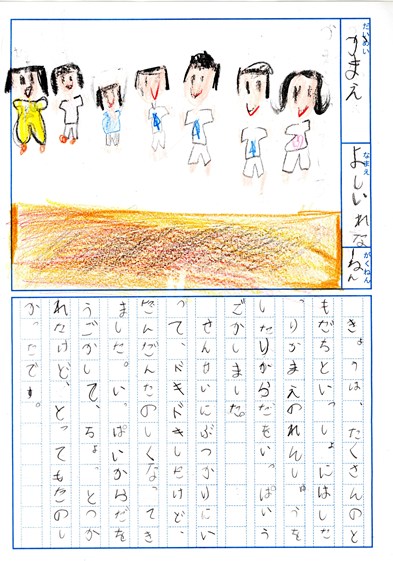 だいめい
かまえ
なまえ
よしいれな
がくねん
ねん
きょうは、たくさんのと
もだちといっしょにはした
っりかまえのれんしゅうを
したりからだをいっぱいう
ごかしました。
せんせいにぶつかりにい
って、ドキドキしたけど、
だんだんたのしくなってき
ました。いっぱいからだを
うごかして、ちょっとつか
れたけど、とってもたのし
かったです。